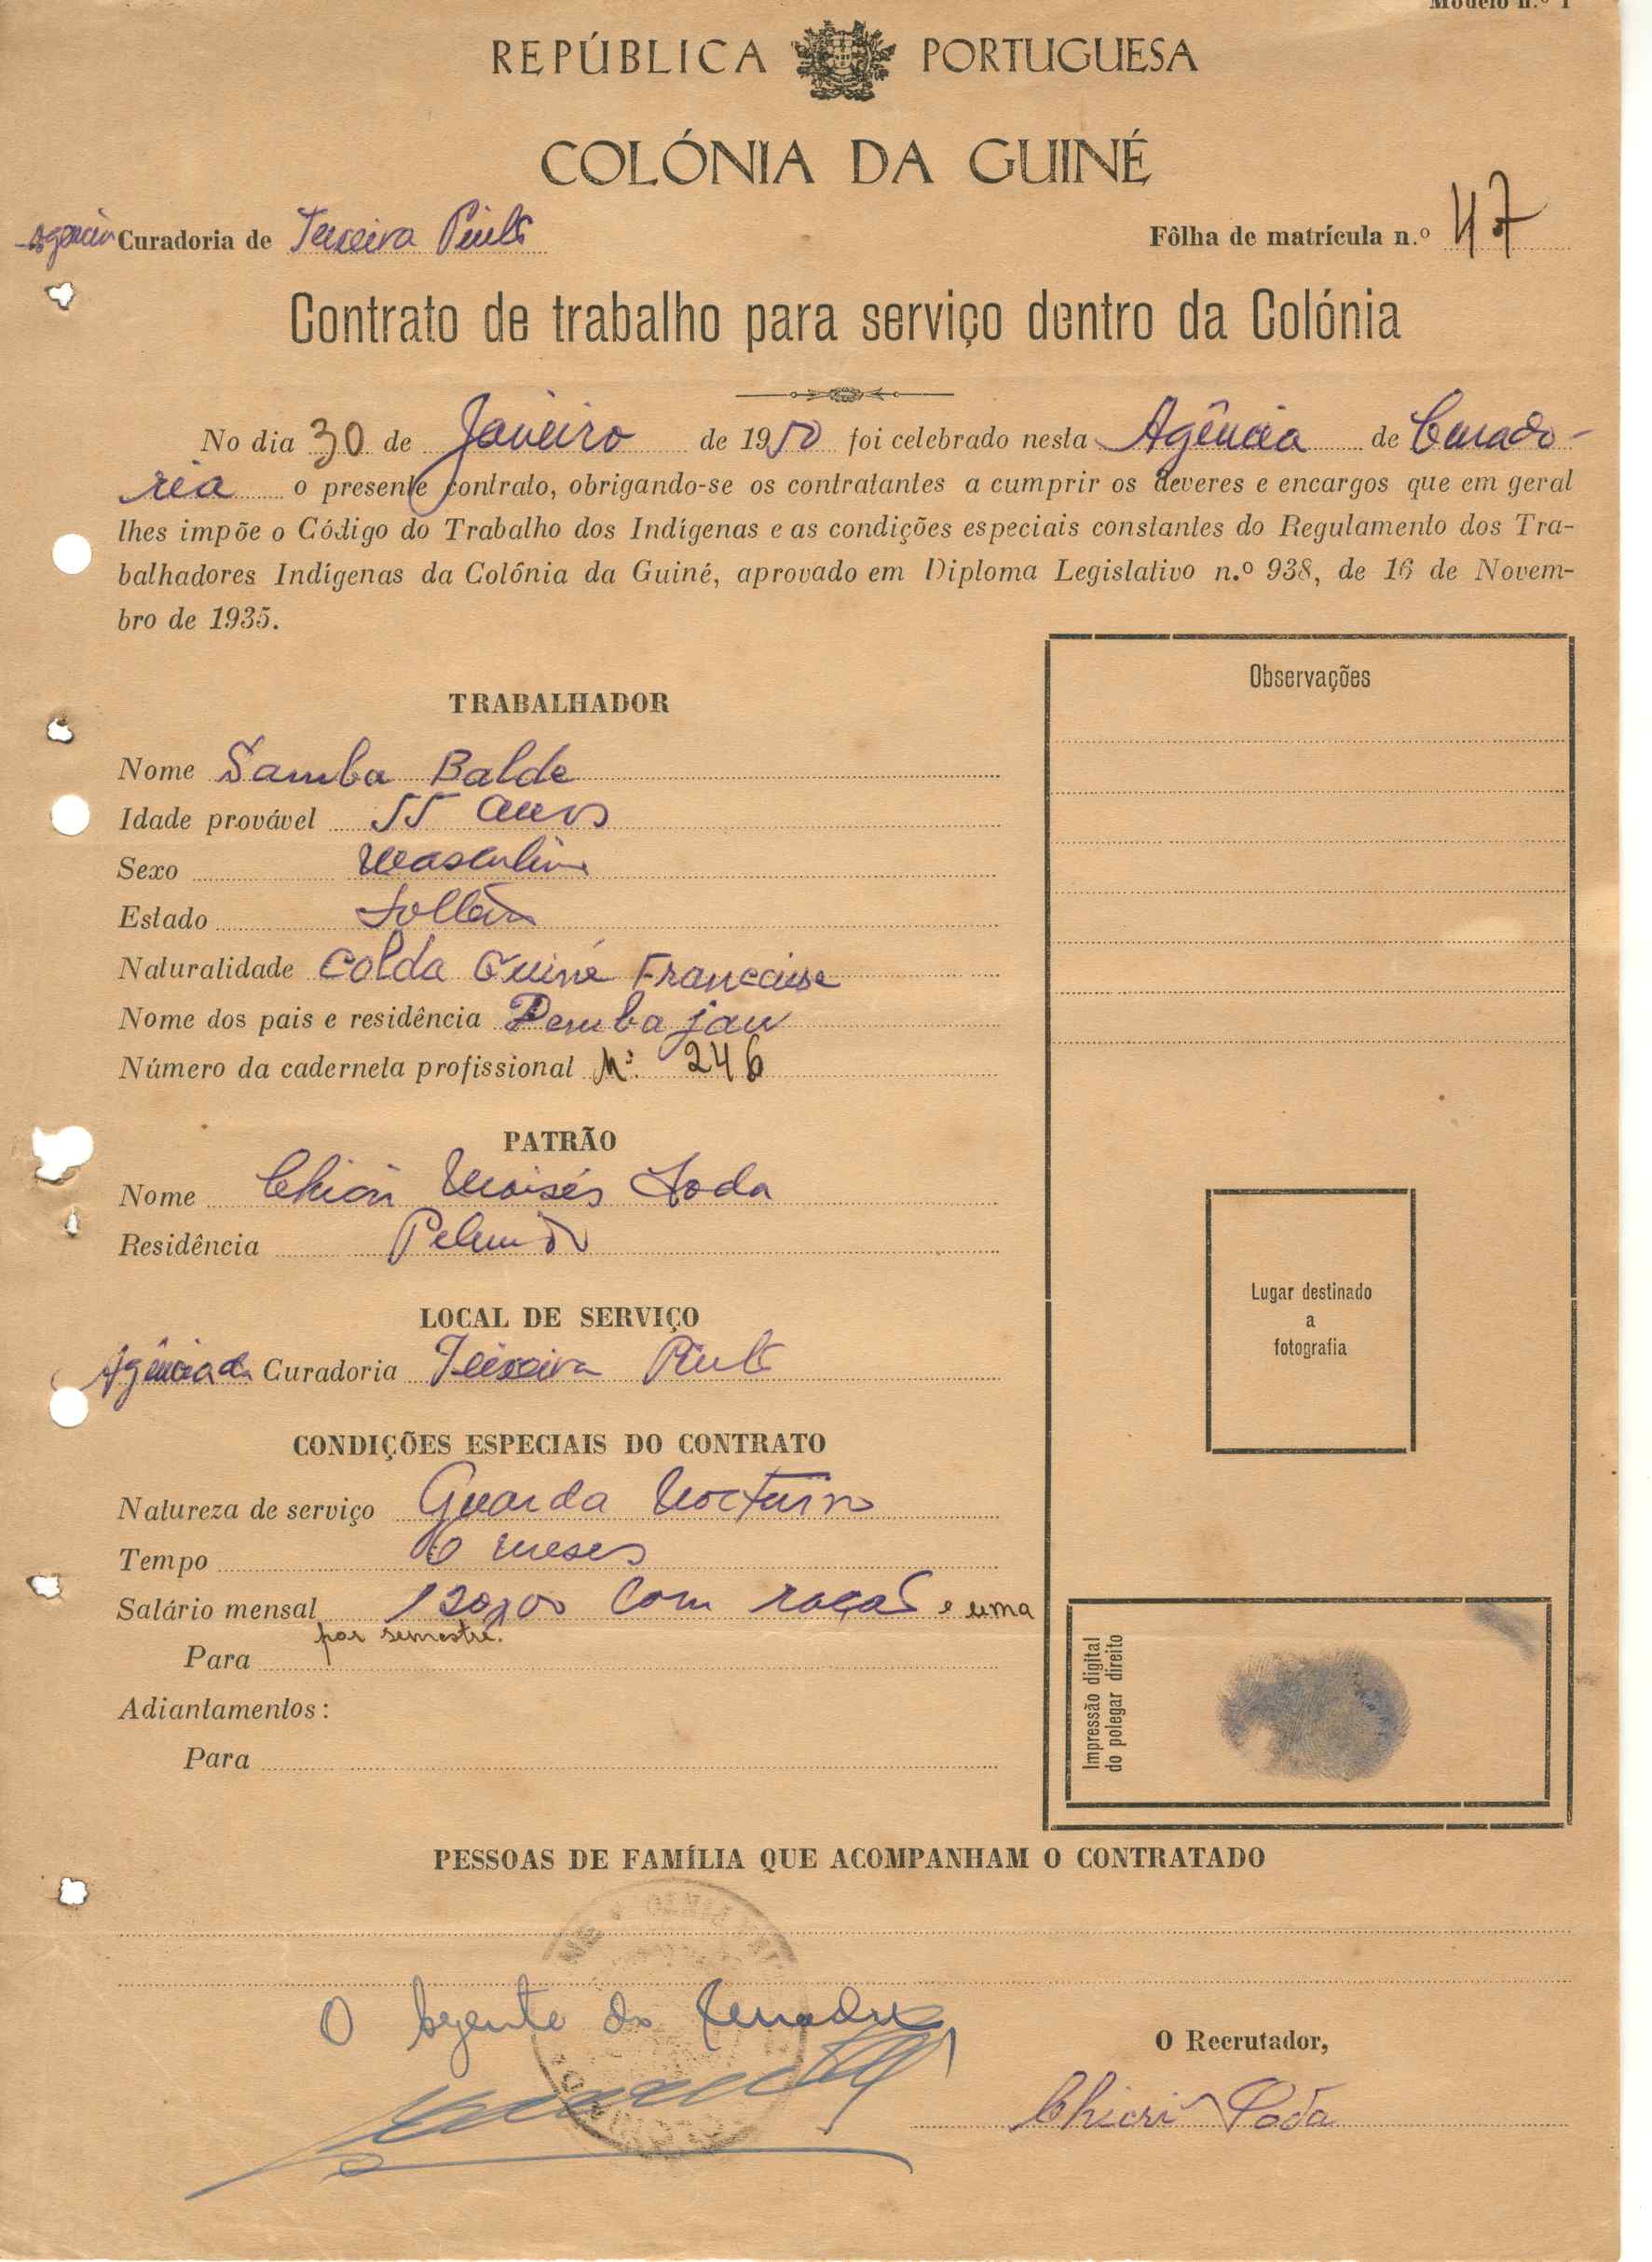 Modelo n.º 1
REPÚBLICA PORTUGUESA
COLÓNIA DA GUINÉ
Agência Curadoria de Teixeira Pinto
Fôlha de matrícula n.º 47
Contrato de trabalho para serviço dentro da Colónia
No dia 30 de Janeiro de 1950 foi celebrado nesta Agência de Curado-
ria o presente contrato, obrigando-se os contratantes a cumprir os deveres e encargos que em geral
lhes impõe o Código do Trabalho dos Indígenas e as condições especiais constantes do Regulamento dos Tra-
balhadores Indígenas da Colónia da Guiné, aprovado em Diploma Legislativo n.º 938, de 16 de Novem-
bro de 1935.
Observações
TRABALHADOR
Nome Samba Balde
Idade provável 55 anos
Sexo Masculino
Estado Solteiro
Naturalidade Colda Guiné Francaise
Nome dos pais e residência Demba jau
Número da caderneta profissional N.º 246
PATRÃO
Nome Moisés
Residência Pelundo
Lugar destinado
a
fotografia
LOCAL DE SERVIÇO
Agência da Curadoria Teixeira Pinto
CONDIÇÕES ESPECIAIS DO CONTRATO
Natureza de serviço Guarda Nocturno
Tempo 6 meses
Salário mensal 120$00 com ração e uma
por semestre.
Para
Adiantamentos:
Para
Impressão digital
do polegar direito
PESSOAS DE FAMÍLIA QUE ACOMPANHAM O CONTRATADO
O Agente do Curador
O Recrutador,